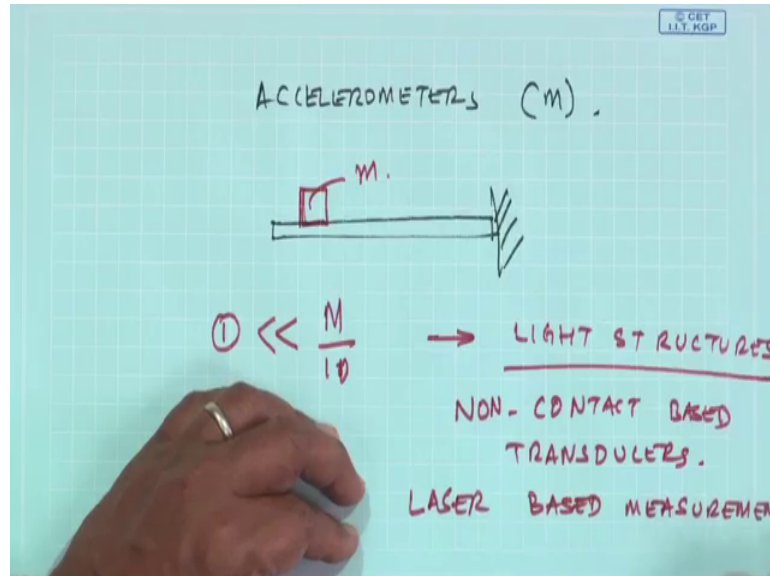 © CET
I.I.T. KGP
ACCELEROMETERS (m).
m.
ⓜ << M/10 → LIGHT STRUCTURES
NON-CONTACT BASED
TRANSDUCERS.
LASER BASED MEASUREMEN